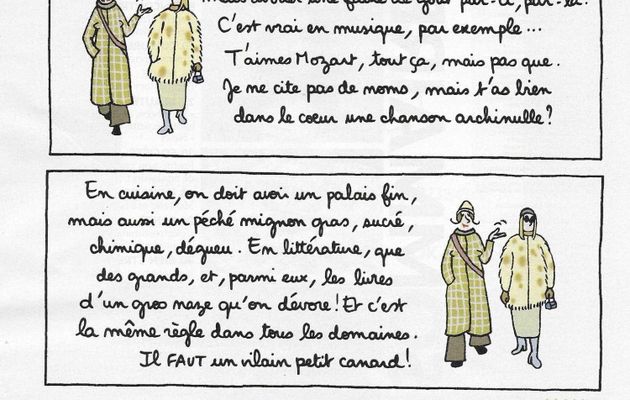 C'est vrai en musique, par exemple...
T'aimes Mozart, tout ça, mais pas que.
Je ne cite pas de noms, mais t'as bien
dans le coeur une chanson archinulle ?
En cuisine, on doit avoir un palais fin,
mais aussi un péché mignon gras, sucré,
chimique, dégueu. En littérature, que
des grands, et, parmi eux, les livres
d'un gros naze qu'on dévore ! Et c'est
la même règle dans tous les domaines.
Il FAUT un vilain petit canard !